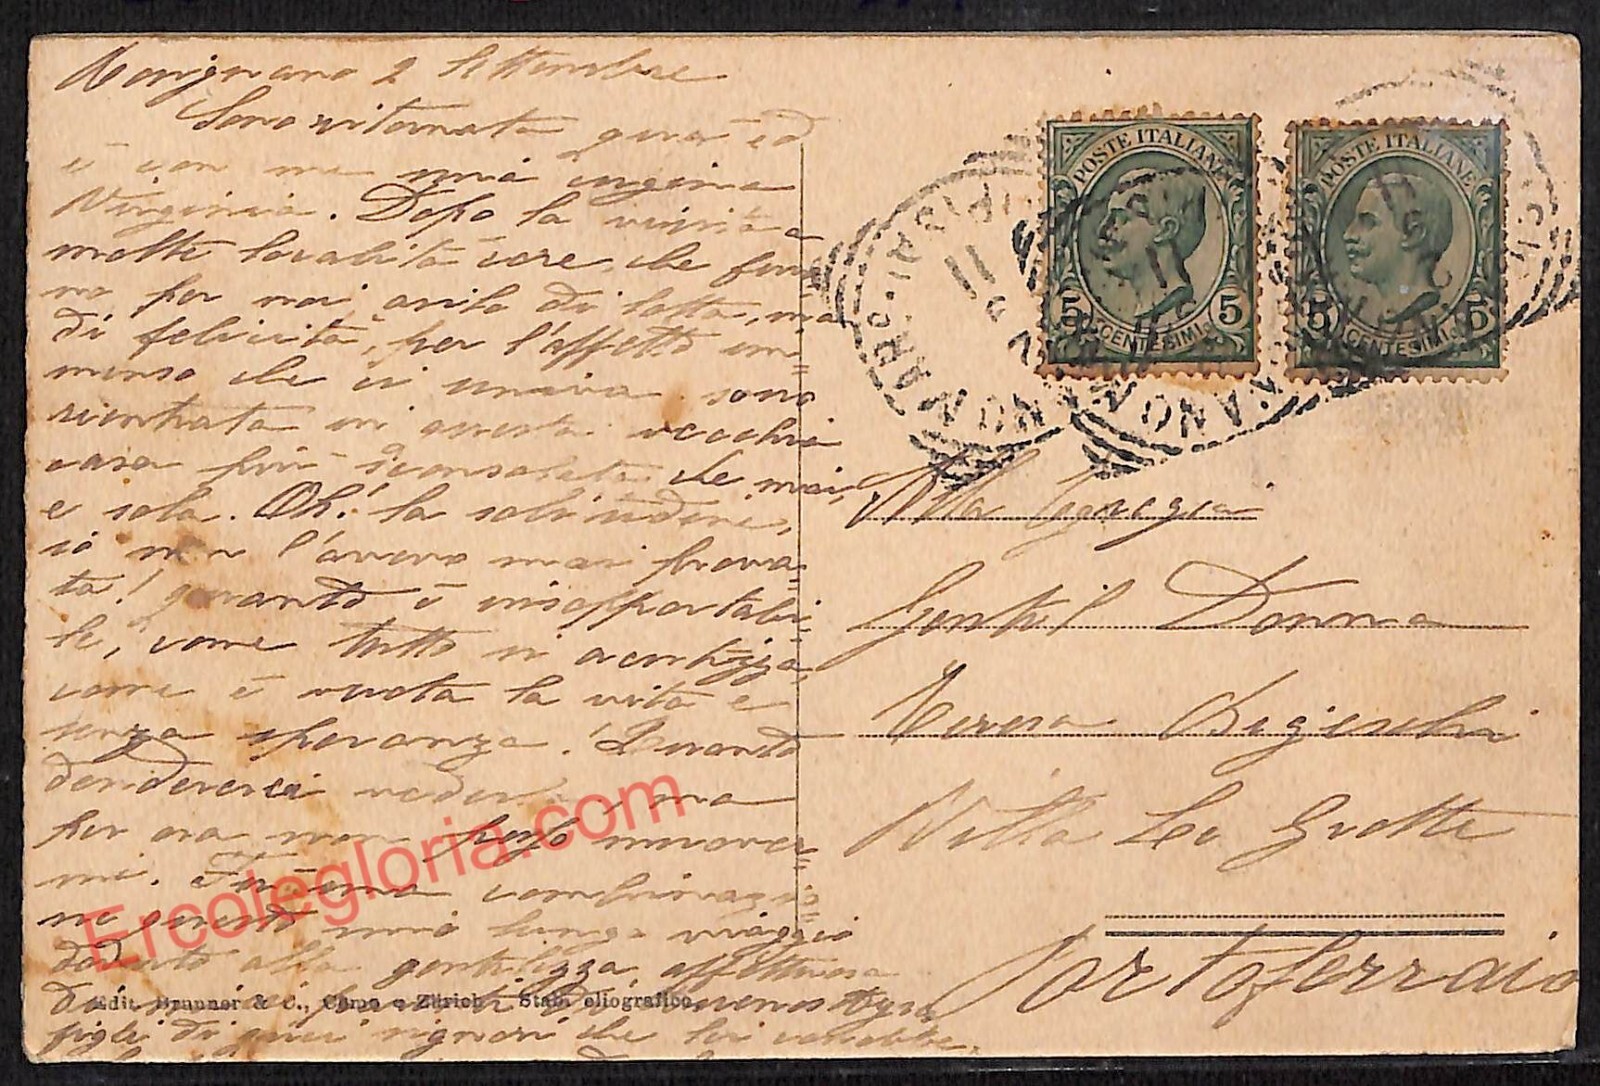 2 Settembre
Sono ritornata qua ed
è con me mia cugina
Virginia. Dopo la visita a
molte località care, che furo=
no per noi di lotta, ma
di felicità, per l'affetto im=
menso che ci univa sono
rientrata in questa vecchia
casa più sconsolata che mai,
e sola. Oh! la solitudine,
io non l'avevo mai prova=
ta! quanto è insopportabi=
le, come tutto si
come è vuota la vita e
senza speranza! Quanto
vedere, ma
per ora non posso muover=
mi. Fu una combinazio=
ne questo mio lungo viaggio
dovuto alla gentilezza affettuosa
di
figli di quei signori che
Alla
Gentil Donna
Teresa Bigeschi
Villa Le Grotte
Portoferraio
POSTE ITALIANE
5 CENTESIMI 5
POSTE ITALIANE
5 CENTESIMI 5
Edit. Brunner & C., Como e Zürich Stab. eliografico
Ercolegloria.com